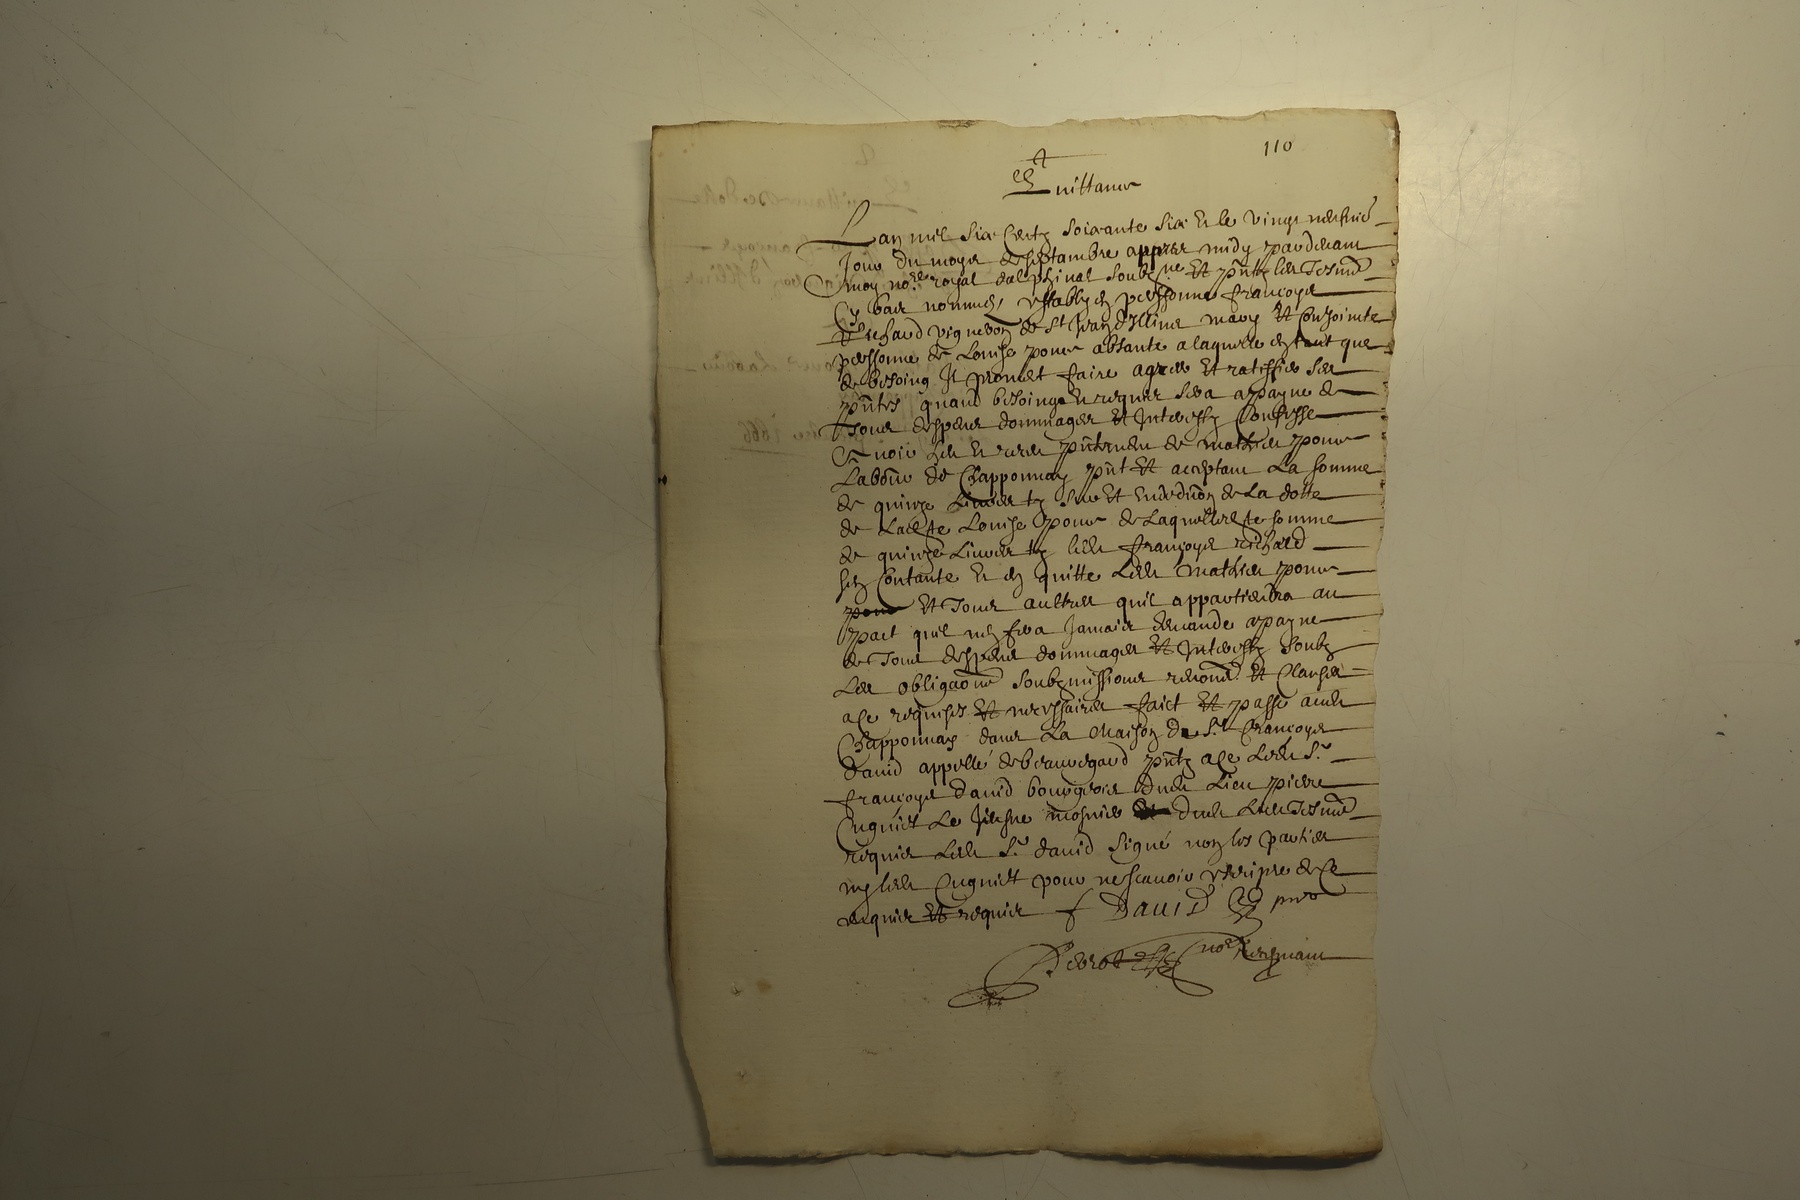 110
Quittance
Lan mil six centz soixante six et le vingt neufvie
Jour du moys de septambre appres midy pardevant
moy nore royal dalphinal soubzne et pntz les tesmo
Cy bas nommes, estably en personne françoys
Richard vigneron de st Jean d'
mary et conjointe
personne de Louise pour absante a laquelle en tant que
de besoing Il promet faire agreer et ratiffier ses
pntes quand besoing et requis sera a payne de
tous despens dommages et Interestz Confesse
avoir heu et receu pntement de mathieu pour
Labour de Chapponnay pnt et acceptant La somme
de quinze Livres tz sur et en deduon de La dotte
de Ladte Louise pour de Laquelle dte somme
de quinze Livres tz led françoys richard
sen Contante et en quitte Led mathieu pour
et tous aultres quil appartiendra au
pact quil nen fera Jamais demande a payne
de tous despens dommages et Interestz soubz
Les obligaons soubzmissions renons et Clauses
a ce requises et necessaires faict et passe aud
Chapponnay dans La Maison de Sr françoys
david appellé de beauregard pntz a ce Led Sr
françoys david bourgeois dud Lieu pierre
Cugniet Le Jeusne mosnier dud Lieu tesmo
requis Led Sr david signé non les parties
ny led Cugniet pour ne scavoir escripre de ce
enquis et requis f David pnt
nore